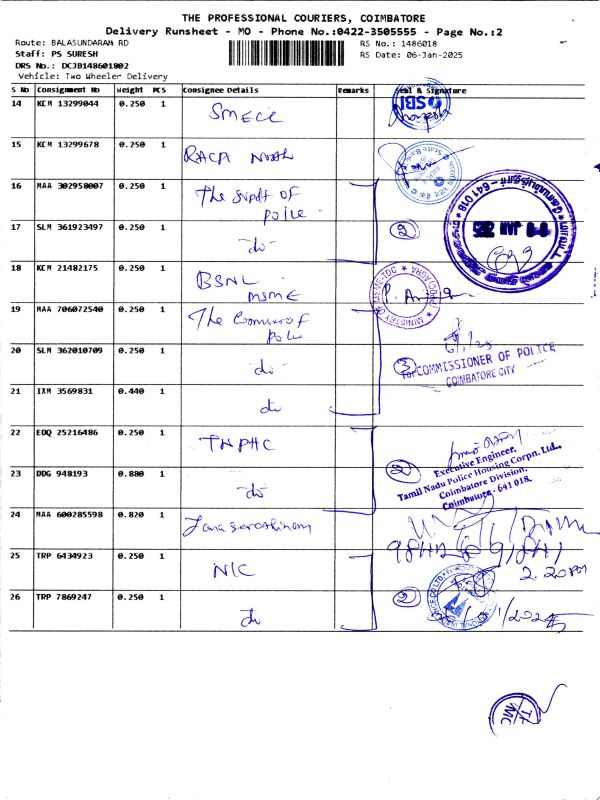 THE PROFESSIONAL COURIERS, COIMBATORE
Delivery Runsheet - MO - Phone No.:0422-3505555 - Page No.:2
Route: BALASUNDARAM RD
RS No.: 1486018
Staff: PS SURESH
RS Date: 06-Jan-2025
DRS No.: DCJB148601802
Vehicle: Two Wheeler Delivery
S No Consignment No Weight PCS Consignee Details Remarks Seal & Signature
14 KCM 13299044 0.250 1 SMECC
SBI
15 KCM 13299678 0.250 1 RACPC
State Bank
16 MAA 302958007 0.250 1 The Supdt of
police
641 018
17 SLM 361923497 0.250 1 -do-
2
18 KCM 21482175 0.250 1 BSNL
MSME
MINISTRY OF MSME
19 MAA 706072540 0.250 1 The Commr of
police
20 SLM 362010709 0.250 1 -do-
3
for COMMISSIONER OF POLICE
COIMBATORE CITY
21 IXM 3569831 0.440 1 do
22 EDQ 25216486 0.250 1 TNPHC
Executive Engineer,
Tamil Nadu Police Housing Corpn. Ltd.,
Coimbatore Division,
Coimbatore - 641 018.
23 DDG 948193 0.880 1 -do-
2
24 MAA 600285598 0.820 1
25 TRP 6434923 0.250 1 NIC
2.20pm
26 TRP 7869247 0.250 1 do
2
TX
MC